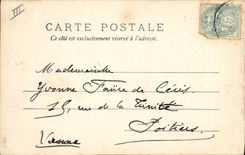 III
CARTE POSTALE
Ce côté est exclusivement réservé à l'adresse.
Mademoiselle
Yvonne Faure de
15, rue de la Trinité
Poitiers
Vienne